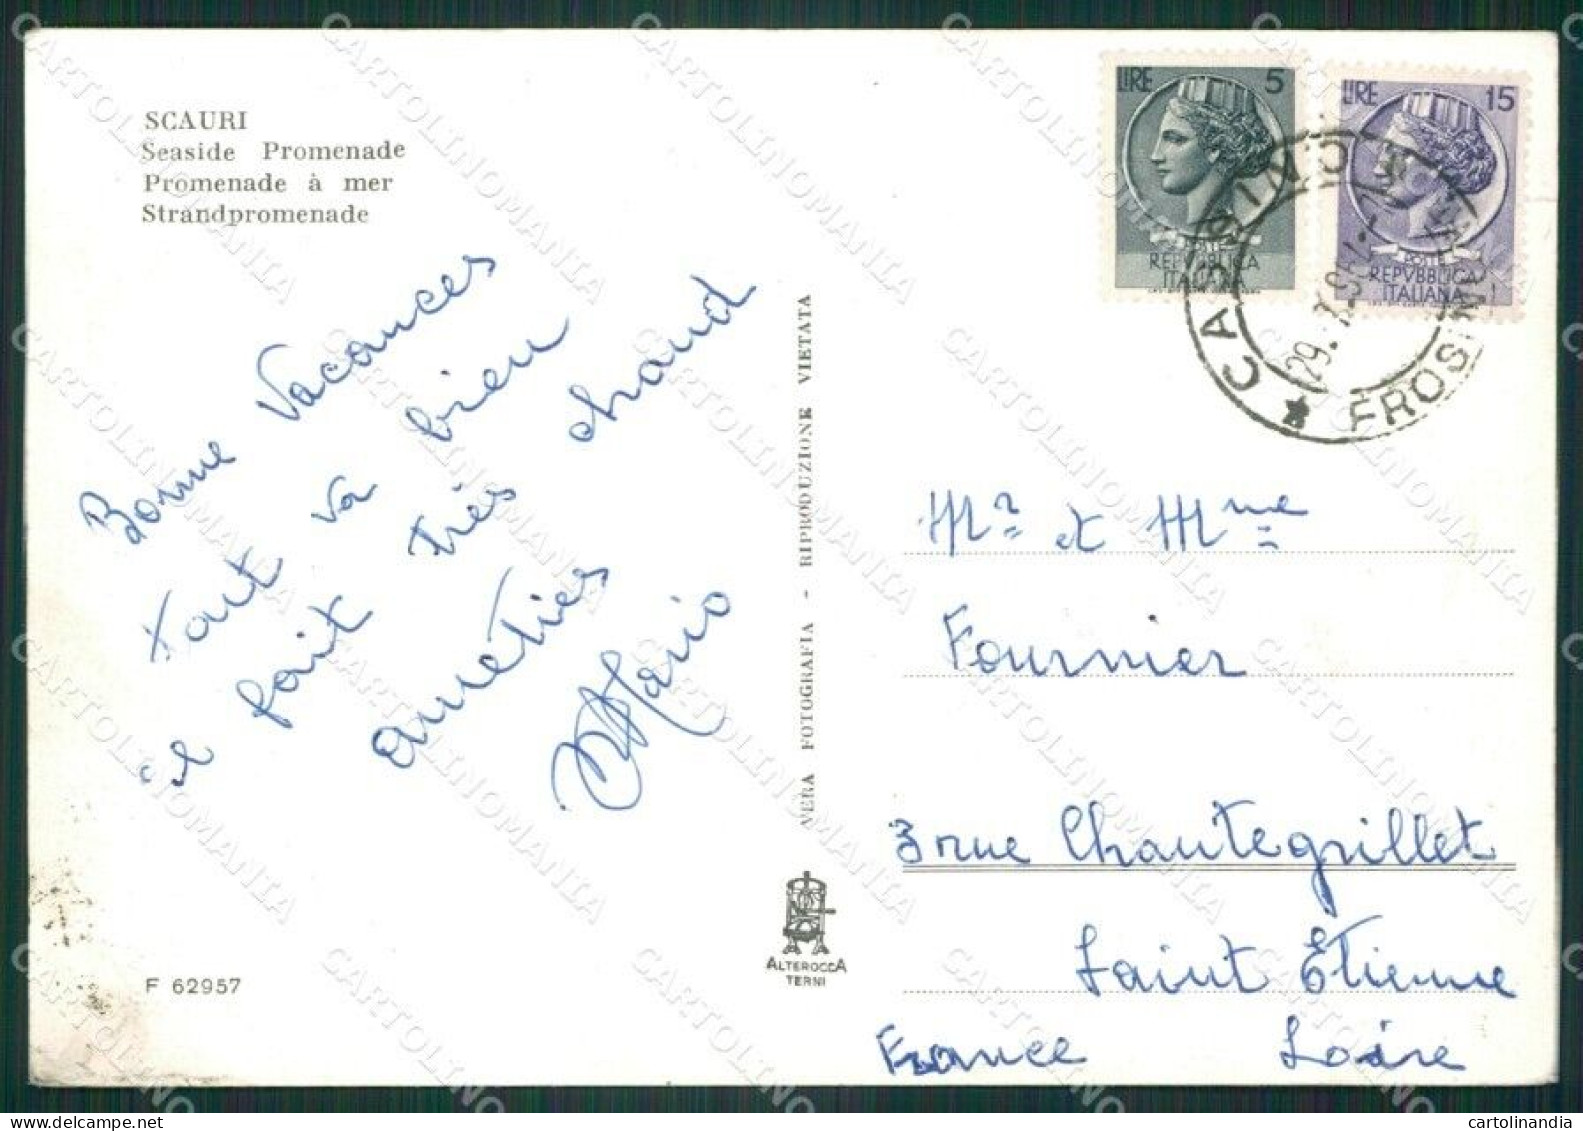 SCAURI
Seaside Promenade
Promenade à mer
Strandpromenade
Bonne Vacances
tout va bien
il fait très chaud
ameties
Mario
F 62957
VERA FOTOGRAFIA - RIPRODUZIONE VIETATA
ALTEROCCA
TERNI
LIRE 5
POSTE
REPVBBLICA
ITALIANA
LIRE 15
POSTE
REPVBBLICA
ITALIANA
CASSINO
FROSINONE
Mr et Mme
Fournier
3 rue Chantegrillet
Saint Étienne
France Loire
CARTOLINOMANIA
cartolinandia